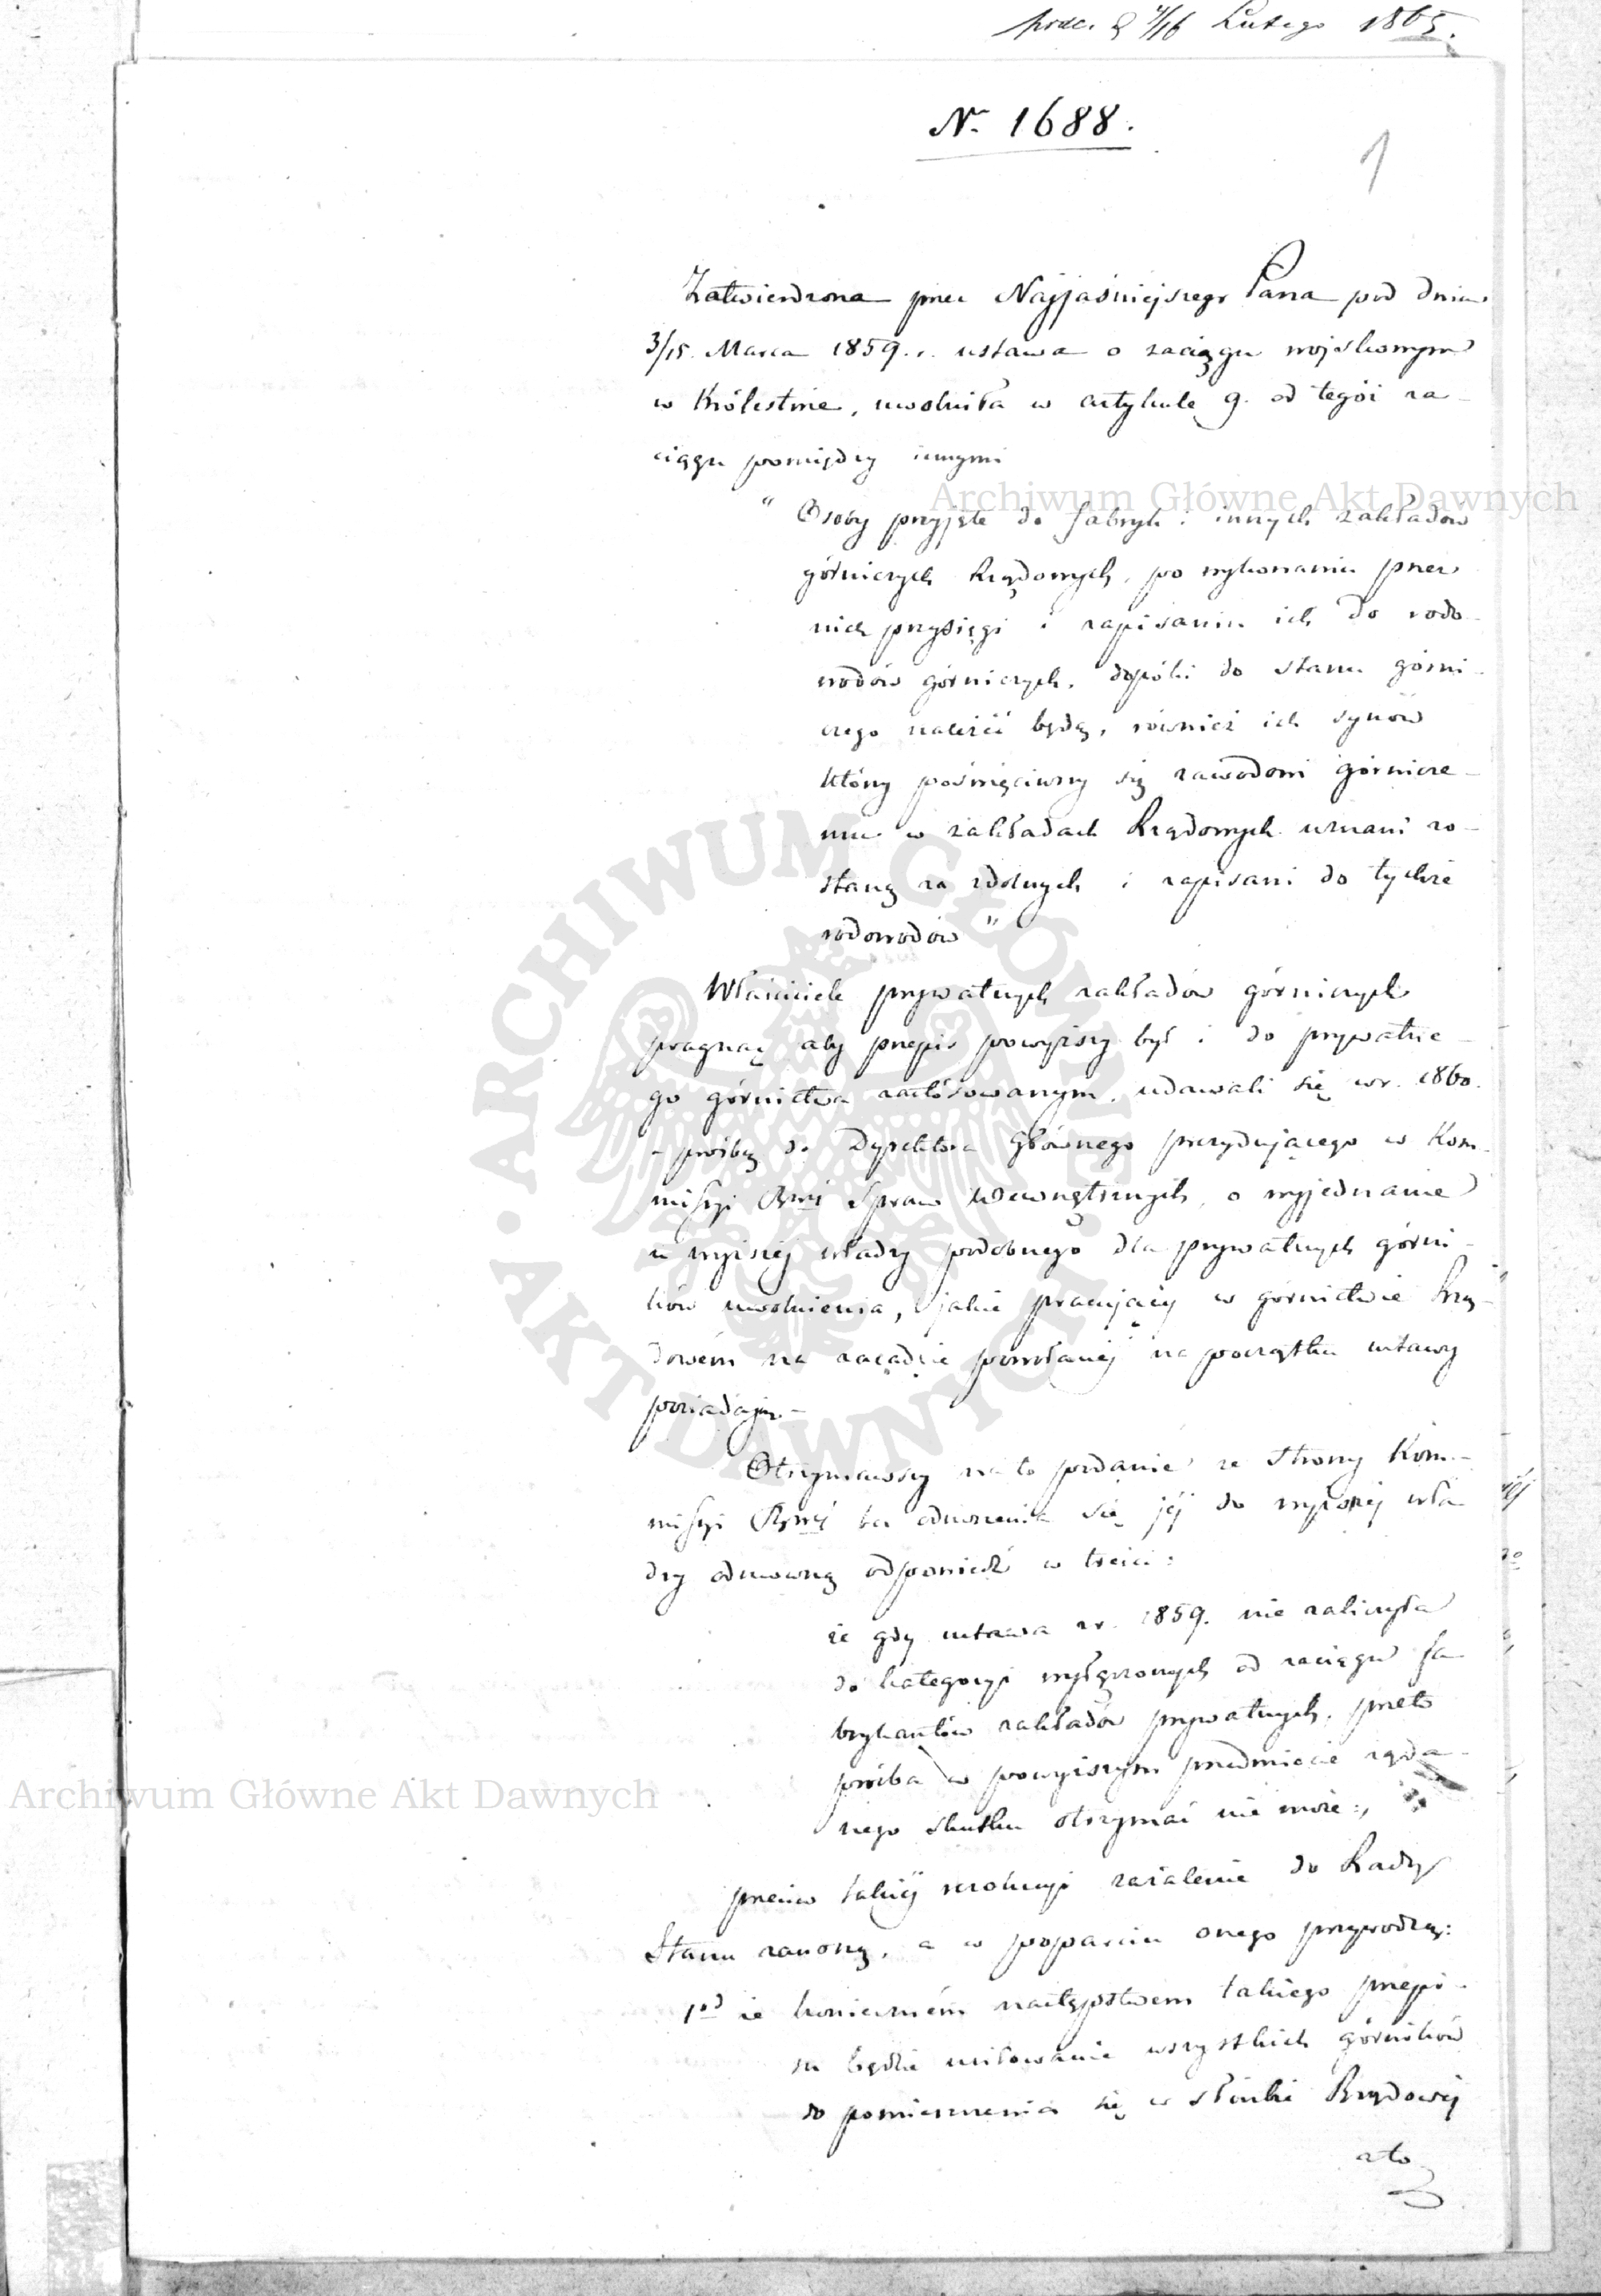 prac. d 4/16 Lutego 1865.
N. 1688.
1
Zatwierdzona przez Najjaśniejszego Pana pod dniem
3/15. Marca 1859. r. ustawa o zaciągu wojskowym
w Królestwie, uwolniła w artykule 9. od tegóż za-
ciągu pomiędzy innymi
" Osoby przyjęte do fabryk i innych zakładów
górniczych Rządowych, po wykonaniu przez
nich przysięgi i zapisaniu ich do rodo-
wodów górniczych, dopóki do stanu górni-
czego należić będą, również ich synów
którzy poświęciwszy się zawodowi górnicze-
mu w zakładach Rządowych uznani zo-
staną za zdolnych i zapisani do tychże
rodowodów "
Właściciele prywatnych zakładów górniczych
pragnąc aby przepis powyższy był i do prywatne-
go górnictwa zastósowanym, udawali się w r. 1860.
z prośbą do Dyrektora Głównego prezydującego w Kom-
missyi Rzwéj Spraw Wewnętrznych, o wyjednanie
u wyższéj władzy podobnego dla prywatnych górni-
ków uwolnienia, jakie pracujący w górnictwie Rzą-
dowém na zasadzie powołanéj na początku ustawy
posiadają.-
Otrzymawszy na to podanie ze strony Kom-
missyi Rzwéj bez odniesienia się jéj do wyższéj wła-
dzy odmowną odpowiedź w treści:
że gdy ustawa z r. 1859. nie zaliczyła
do kategoryi wyłączonych od zaciągu fa-
brykantów zakładów prywatnych, przeto
prośba w powyższym przedmiocie żąda-
nego skutku otrzymać nie może:,
przeciw takiéj rezolucyi zażalenie do Rady
Stanu zanoszą, a w poparciu onego przywodzą:
1od że konieczném następstwem takiego przepi-
su będzie usiłowanie wszystkich górników
do pomieszczenia się w służbie Rządowéj
a to
Archiwum Główne Akt Dawnych
ARCHIWUM GŁÓWNE • AKT DAWNYCH •
Archiwum Główne Akt Dawnych